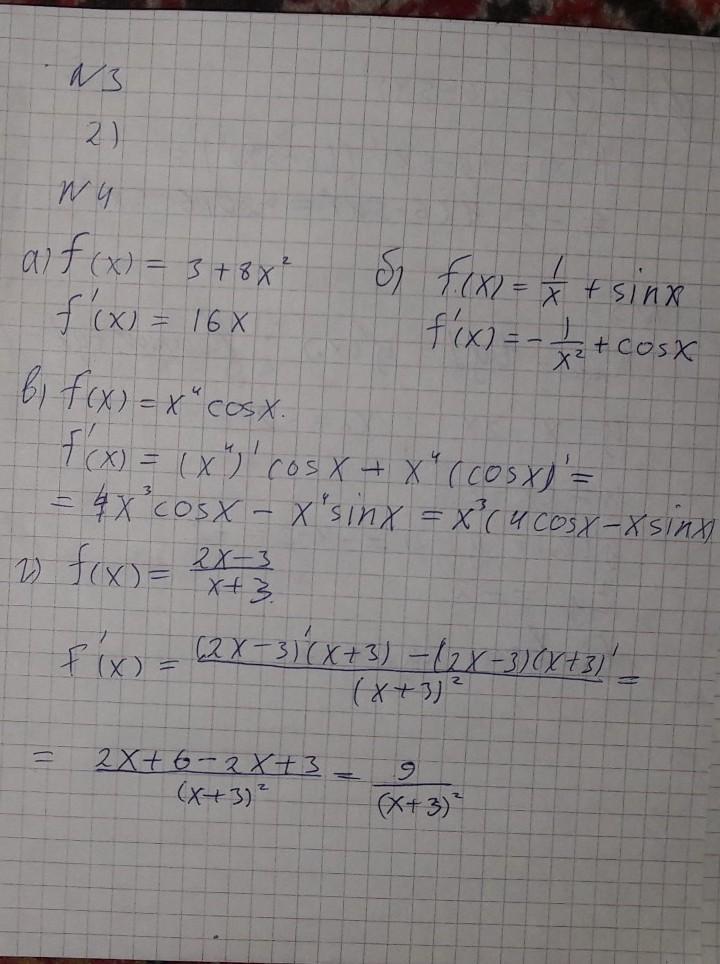 N3
2)
N4
а) f(x) = 3 + 8x²
f'(x) = 16x
б) f(x) = 1/x + sinx
f'(x) = -1/x² + cosx
в) f(x) = x⁴cosx.
f'(x) = (x⁴)'cosx + x⁴(cosx)' =
= 4x³cosx - x⁴sinx = x³(4cosx - xsinx)
г) f(x) = (2x-3)/(x+3)
F'(x) = ((2x-3)'(x+3) - (2x-3)(x+3)')/(x+3)² =
= (2x+6-2x+3)/(x+3)² = 9/(x+3)²